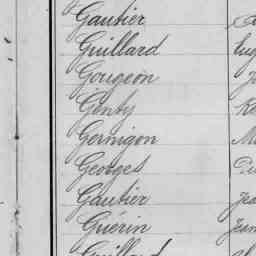 Gautier
Guillard Eug
Gougeon
Genty
Gernigon
Georges
Gautier Jea
Guérin Jean
Guillard